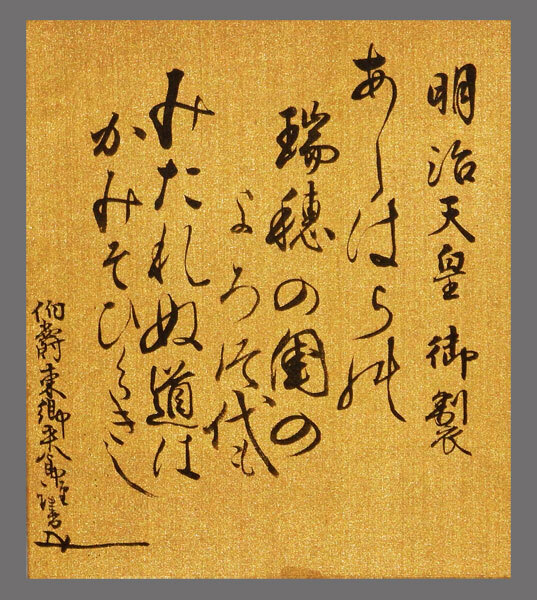 明治天皇御製
あしはらの
瑞穂の国の
よろつ代も
みたれぬ道は
かみそひらきし
伯爵東郷平八郎謹書